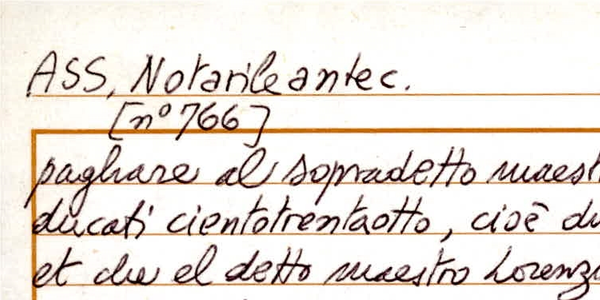 ASS, Notarile antec.
[n° 766]
paghare al sopradetto maest
ducati cientotrentaotto, cioè du
et che el detto maestro Lorenz